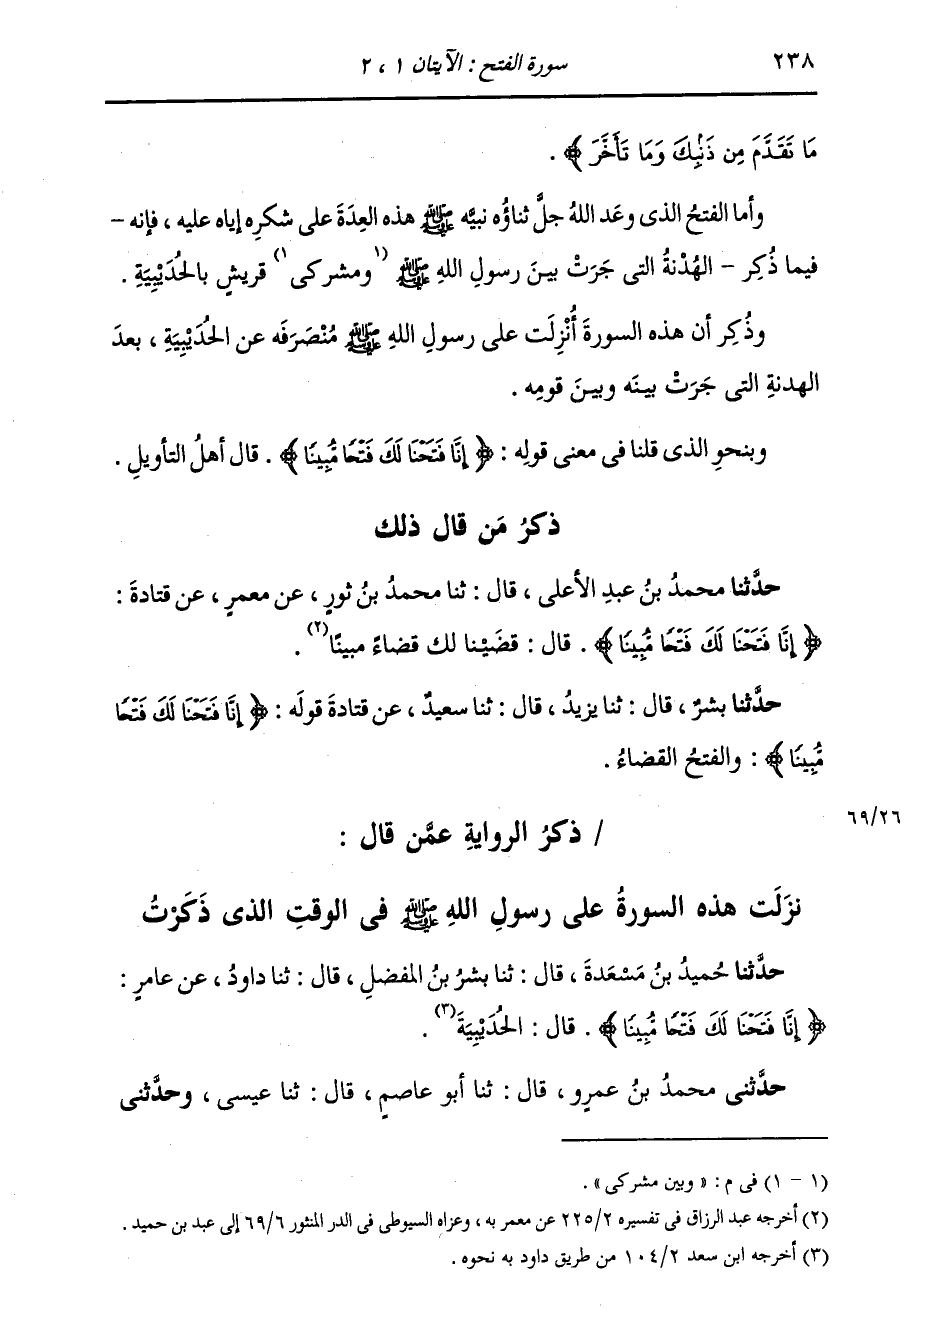 ٢٣٨ سورة الفتح : الآيتان ١ ، ٢
مَا تَقَدَّمَ مِن ذَنْبِكَ وَمَا تَأَخَّرَ ﴾ .
وأما الفتحُ الذى وعَد اللهُ جلَّ ثناؤُه نبيَّه ﷺ هذه العِدَةَ على شكرِه إياه عليه ، فإنه –
فيما ذُكِر – الهُدْنةُ التى جَرَتْ بينَ رسولِ اللهِ ﷺ (١ ومشركى ١) قريشٍ بالحُدَيْبِيَةِ .
وذُكِر أن هذه السورةَ أُنْزِلَت على رسولِ اللهِ ﷺ مُنْصَرَفَه عن الحُدَيْبِيَةِ ، بعدَ
الهدنةِ التى جَرَتْ بينَه وبينَ قومِه .
وبنحوِ الذى قلنا فى معنى قولِه : ﴿ إِنَّا فَتَحْنَا لَكَ فَتْحًا مُّبِينًا ﴾ . قال أهلُ التأويلِ .
ذكرُ مَن قال ذلك
حدَّثنا محمدُ بنُ عبدِ الأعلى ، قال : ثنا محمدُ بنُ ثورٍ ، عن معمرٍ ، عن قتادةَ :
﴿ إِنَّا فَتَحْنَا لَكَ فَتْحًا مُّبِينًا ﴾ . قال : قضَيْنا لك قضاءً مبينًا (٢) .
حدَّثنا بشرٌ ، قال : ثنا يزيدُ ، قال : ثنا سعيدٌ ، عن قتادةَ قولَه : ﴿ إِنَّا فَتَحْنَا لَكَ فَتْحًا
مُّبِينًا ﴾ : والفتحُ القضاءُ .
٦٩/٢٦ / ذكرُ الروايةِ عمَّن قال :
نزَلَت هذه السورةُ على رسولِ اللهِ ﷺ فى الوقتِ الذى ذَكَرْتُ
حدَّثنا حُميدُ بنُ مَسْعَدةَ ، قال : ثنا بشرُ بنُ المفضلِ ، قال : ثنا داودُ ، عن عامرٍ :
﴿ إِنَّا فَتَحْنَا لَكَ فَتْحًا مُّبِينًا ﴾ . قال : الحُدَيْبِيَةَ (٣) .
حدَّثنى محمدُ بنُ عمرٍو ، قال : ثنا أبو عاصمٍ ، قال : ثنا عيسى ، وحدَّثنى
(١ – ١) فى م : « وبين مشركى » .
(٢) أخرجه عبد الرزاق فى تفسيره ٢٢٥/٢ عن معمر به ، وعزاه السيوطى فى الدر المنثور ٦٩/٦ إلى عبد بن حميد .
(٣) أخرجه ابن سعد ١٠٤/٢ من طريق داود به نحوه .